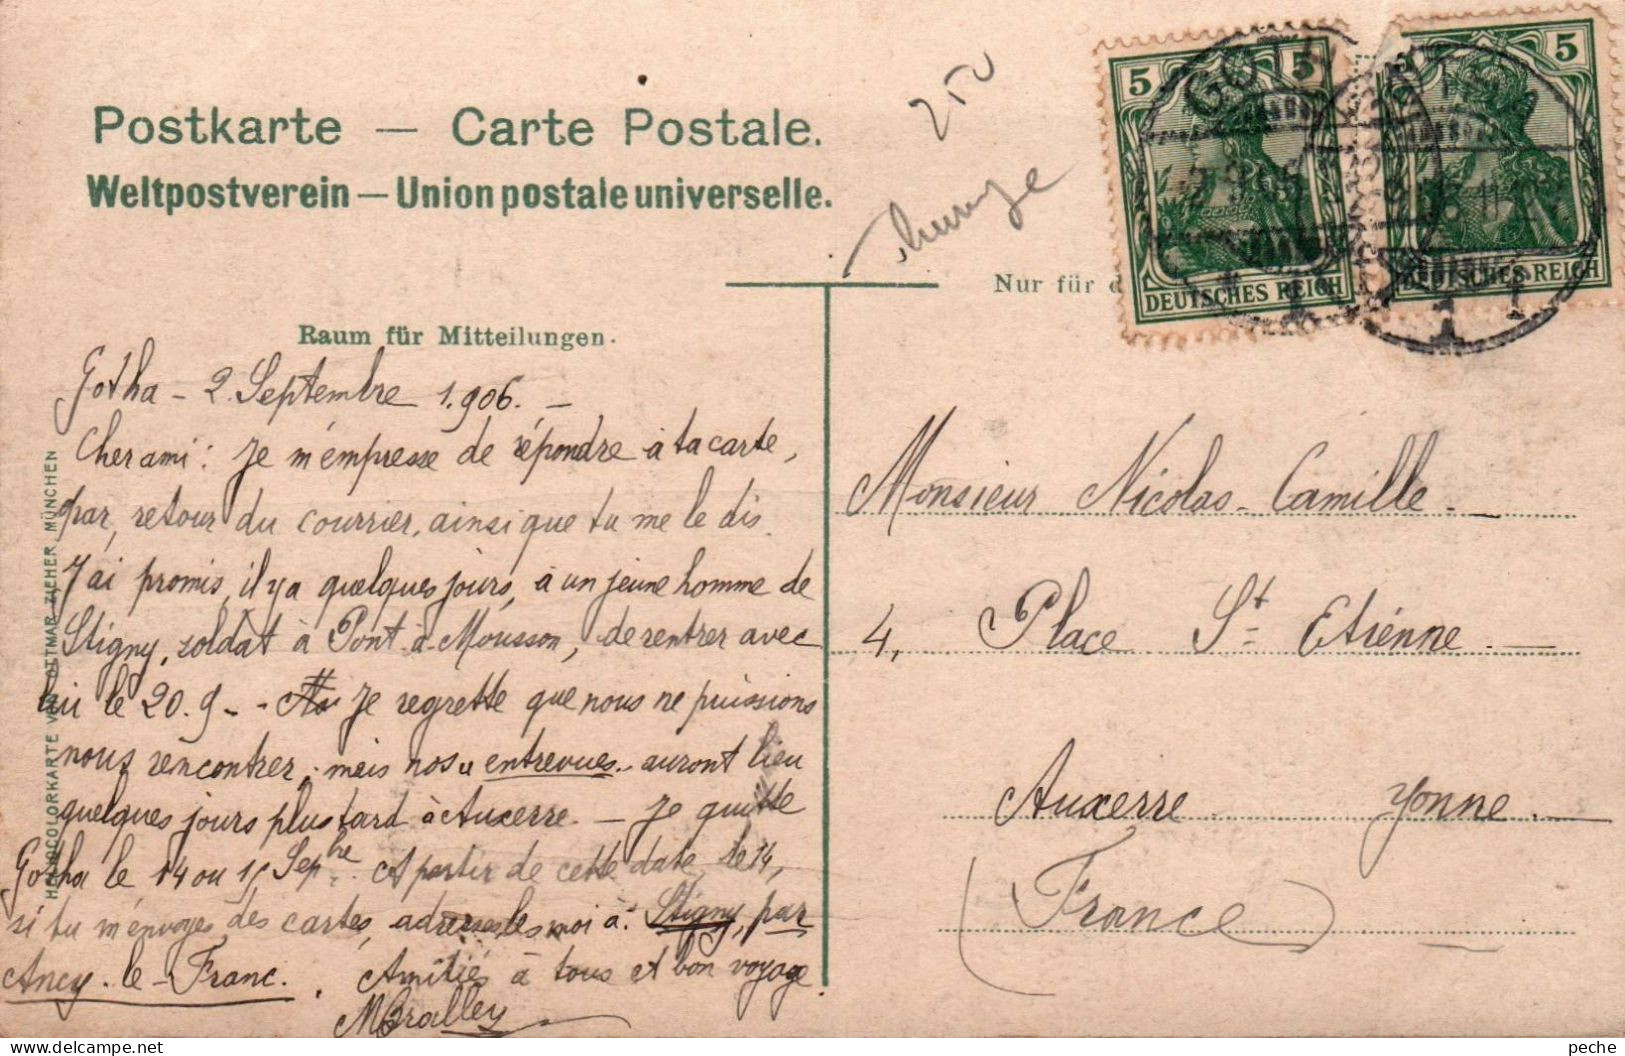 Postkarte — Carte Postale.
Weltpostverein — Union postale universelle.
250
Nur für d
5 5
DEUTSCHES REICH
5 5
DEUTSCHES REICH
Raum für Mitteilungen.
Gotha - 2. Septembre 1.906. -
Cher ami: Je m'empresse de répondre à ta carte,
par, retour du courrier, ainsi que tu me le dis.
J'ai promis, il y a quelques jours, à un jeune homme de
Stigny, soldat à Pont-à-Mousson, de rentrer avec
lui le 20.9 - - Je regrette que nous ne puissions
nous rencontrer, mais nos "entrevues" auront lieu
quelques jours plus tard à Auxerre. - Je quitte
Gotha le 14 ou 15 Sepbre. A partir de cette date, le 14,
si tu m'envoyes des cartes, adresses les moi à: Stigny, par
Ancy-le-Franc. . Amitiés à tous et bon voyage
Monsieur Nicolas-Camille. -
4, Place St Etienne. -
Auxerre. Yonne. -
(France) -
HELIOCOLORKARTE VON OTTMAR ZIEHER MÜNCHEN
peche